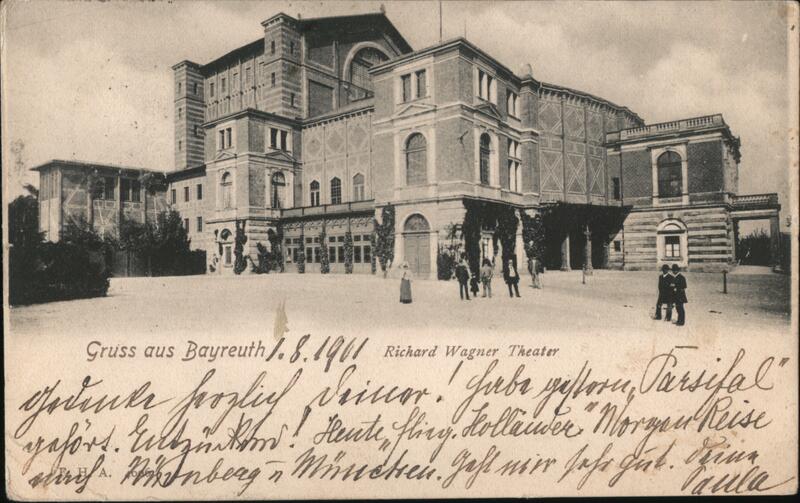 Gruss aus Bayreuth 1.8.1901 Richard Wagner Theater
Gedenke herzlich Deiner! Habe gestern „Parsifal”
gehört. Entzückend! Heute „flieg. Holländer” Morgen Reise
nach Nürnberg u München. Geht mir sehr gut. Deine
Paula
F. H. A.